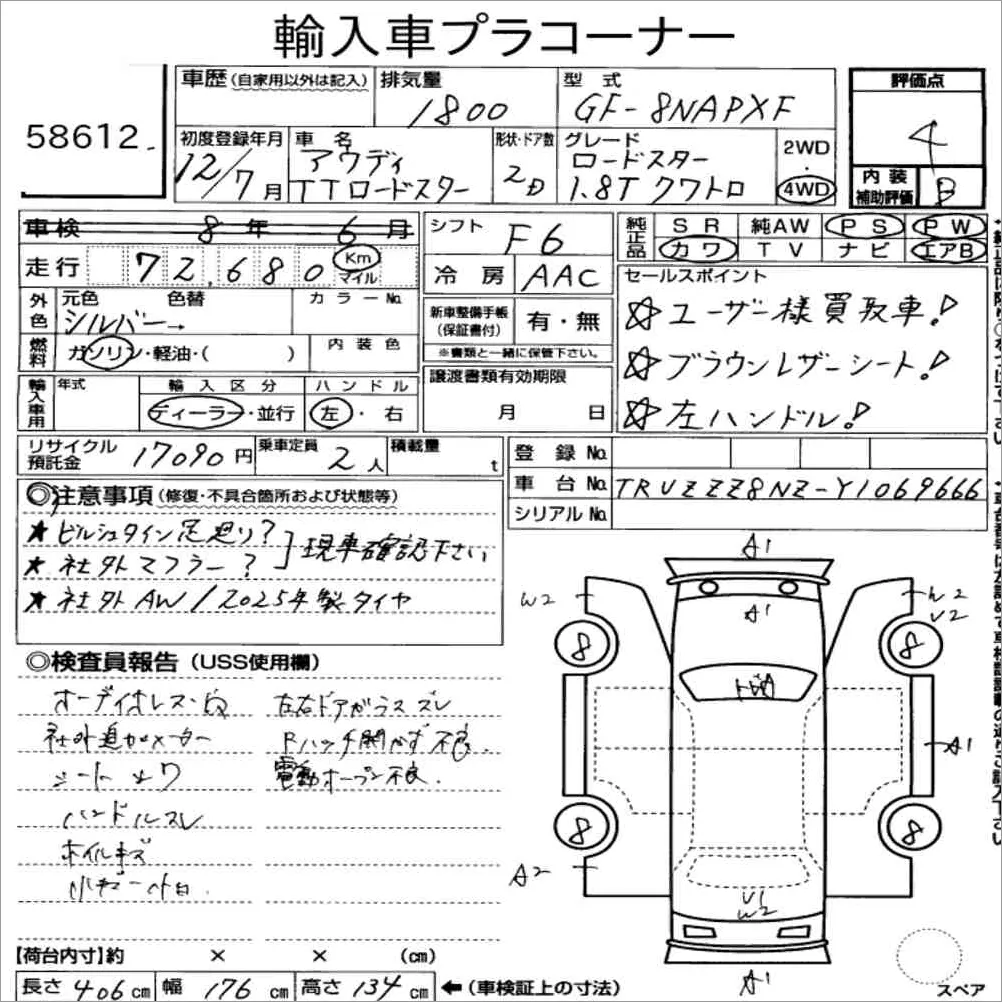 輸入車プラコーナー
58612
車歴(自家用以外は記入) 排気量 1800 型式 GF-8NAPXF
評価点 4
内装補助評価 B
初度登録年月 12/7月 車名 アウディ TTロードスター
形状・ドア数 2D グレード ロードスター 1.8T クワトロ
2WD・4WD
車検 8年 6月
走行 72,680 Km マイル
外色 元色 色替 シルバー→ カラーNo.
燃料 ガソリン・軽油・( ) 内装色
輸入車用 年式 輸入区分 ディーラー・並行 ハンドル 左・右
リサイクル預託金 17090円 乗車定員 2人 積載量 t
シフト F6
冷房 AAC
新車整備手帳(保証書付) 有・無
※書類と一緒に保管下さい。
譲渡書類有効期限
月 日
純正品 SR 純AW PS PW
カワ TV ナビ エアB
セールスポイント
☆ユーザー様買取車!
☆ブラウンレザーシート!
☆左ハンドル!
登録No.
車台No. TRUZZZ8NZ-Y1069666
シリアルNo.
◎注意事項(修復・不具合箇所および状態等)
★ビルシュタイン足廻り?
★社外マフラー?
]現車確認下さい
★社外AW/2025年製タイヤ
◎検査員報告(USS使用欄)
社外追加メーター
ハンドルスレ
ホイルキズ
左右ドアガラススレ
Rハッチ開かず不良.
電動オープン不良.
A1
A1
W2
W2
U2
8
8
A1
8
8
A2
U1
W2
A1
スペア
【荷台内寸】約 × × (cm)
長さ 406cm 幅 176cm 高さ 134cm ←(車検証上の寸法)